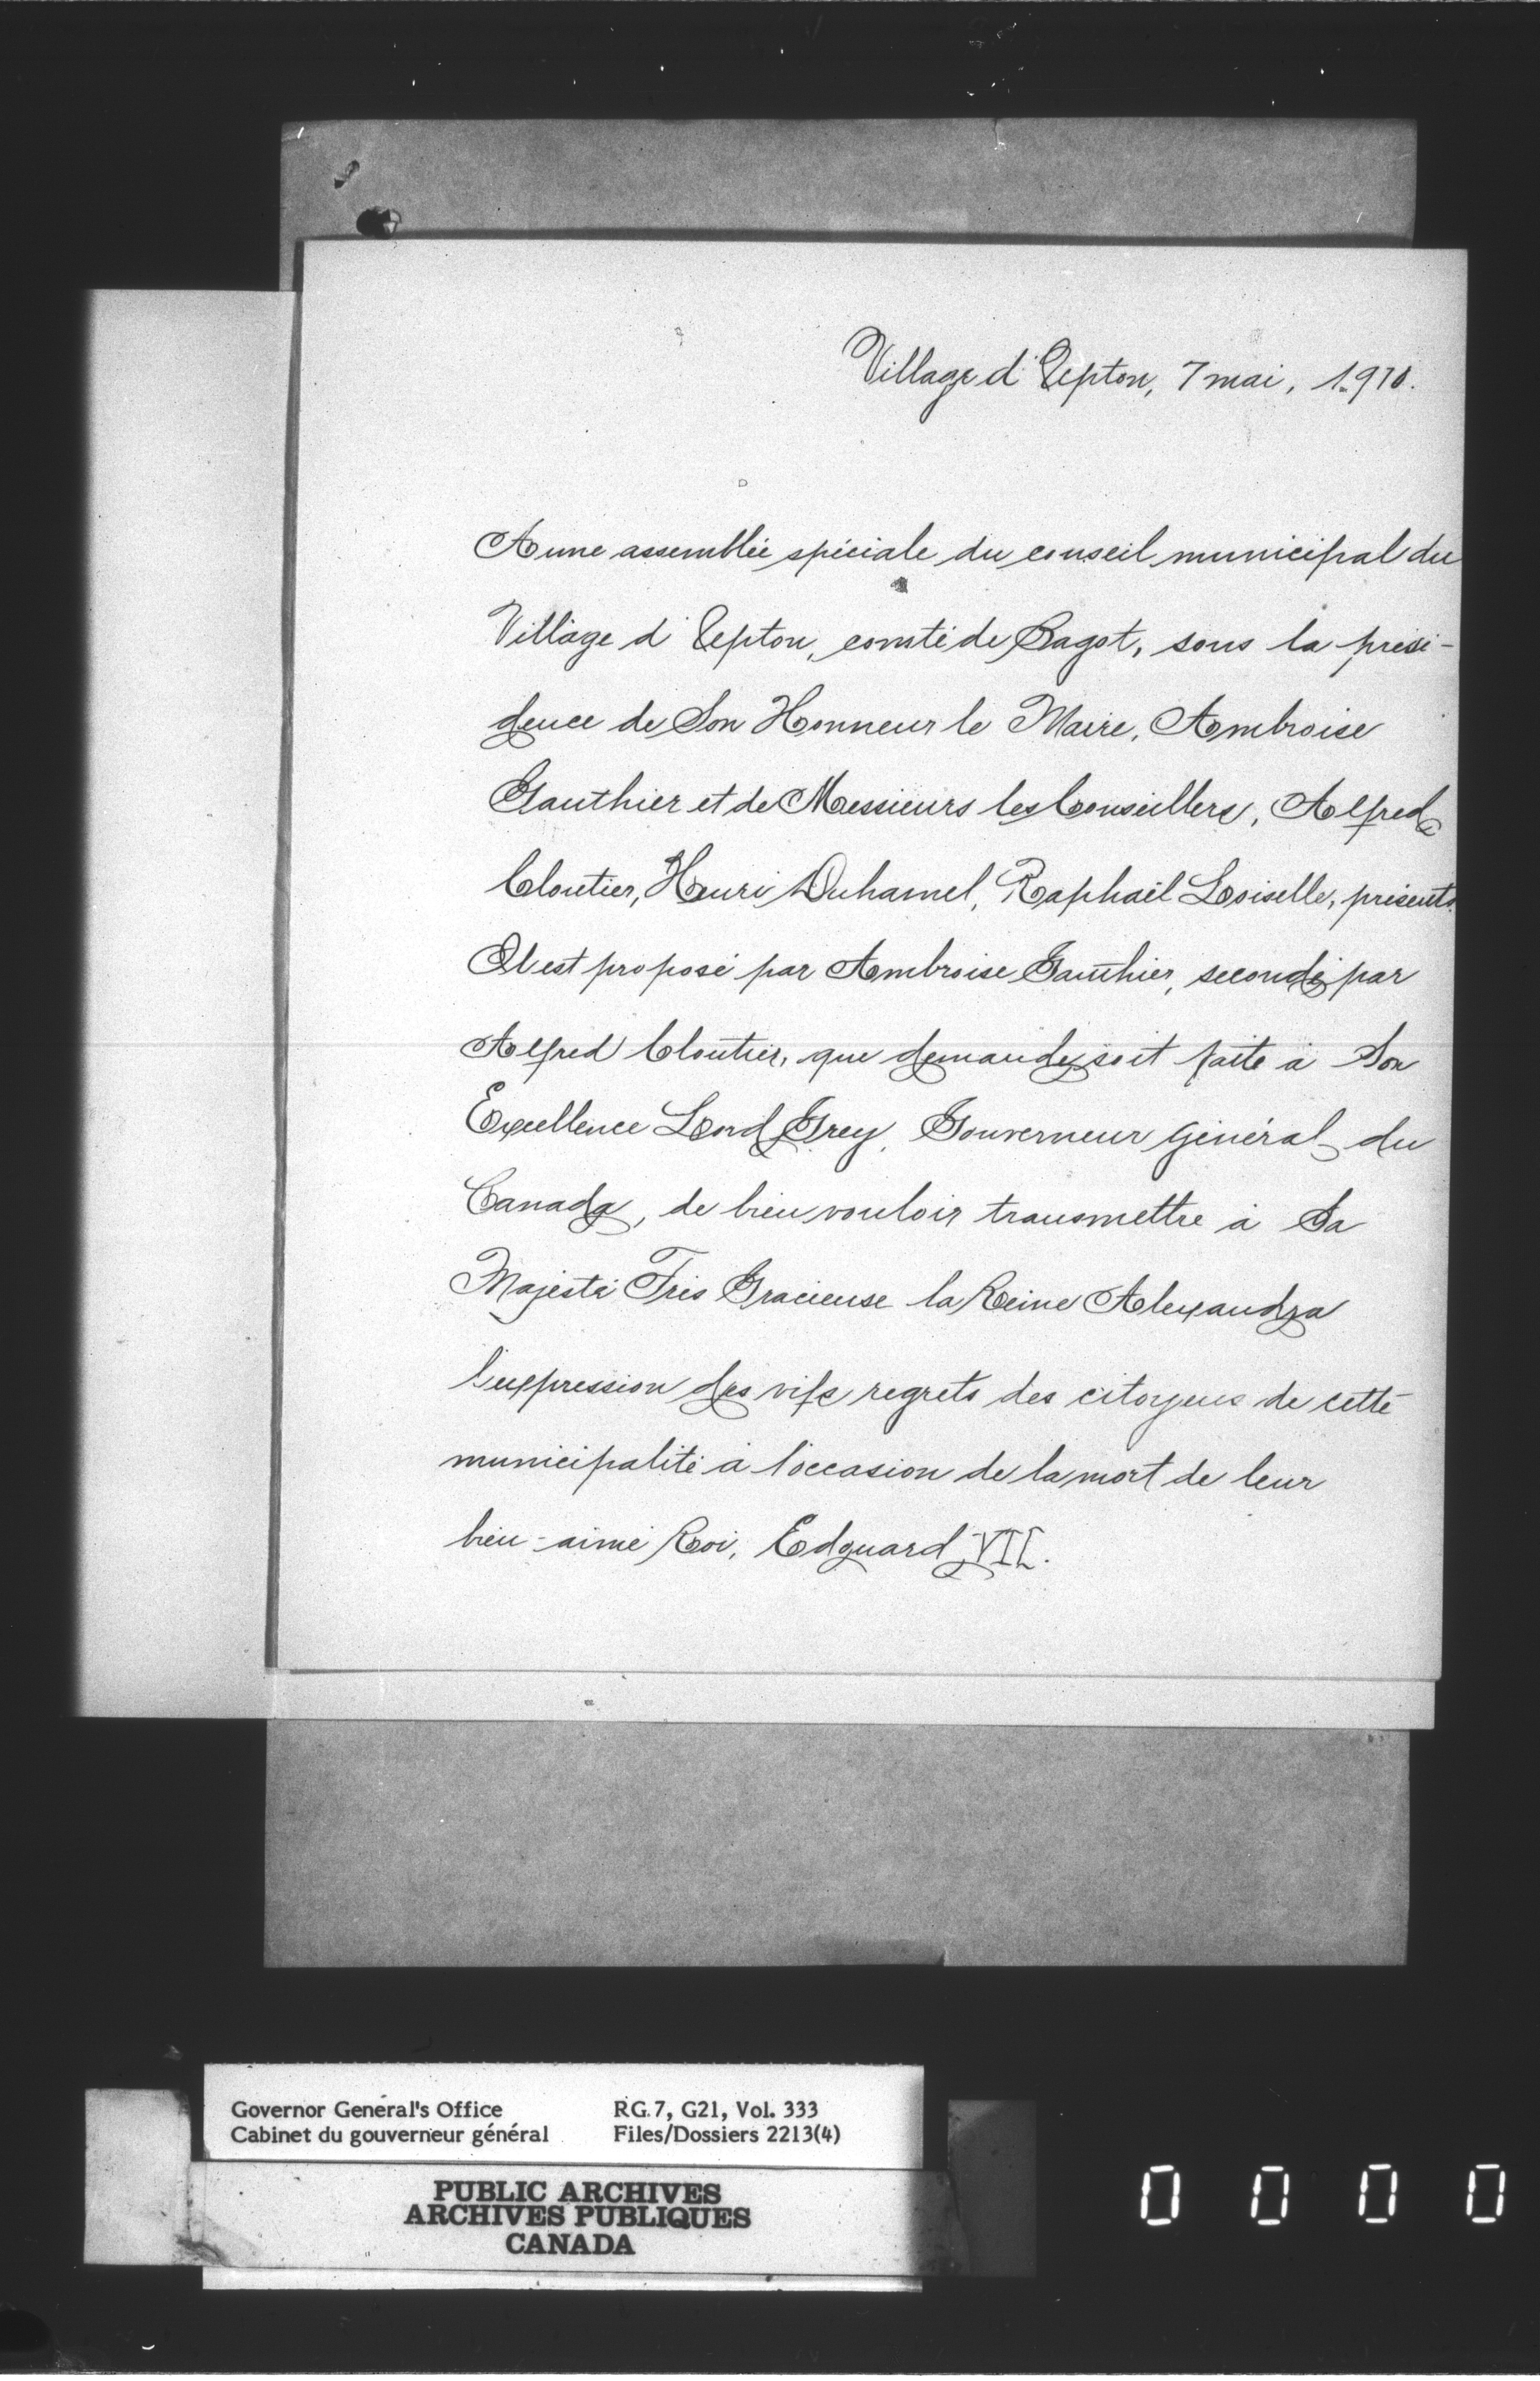 Village d'Upton, 7 mai, 1910.
A une assemblée spéciale du conseil municipal du
Village d'Upton, comté de Bagot, sous la prési-
dence de Son Honneur le Maire, Ambroise
Gauthier et de Messieurs les Conseillers, Alfred
Cloutier, Henri Duhamel, Raphaël Loiselle, présents.
Il est proposé par Ambroise Gauthier, secondé par
Alfred Cloutier, que demande soit faite à Son
Excellence Lord Grey, Gouverneur Général du
Canada, de bien vouloir transmettre à Sa
Majesté Très Gracieuse la Reine Alexandra
l'expression des vifs regrets des citoyens de cette
municipalité à l'occasion de la mort de leur
bien-aimé Roi, Edouard VII.
Governor General's Office RG 7, G21, Vol. 333
Cabinet du gouverneur général Files/Dossiers 2213(4)
PUBLIC ARCHIVES
ARCHIVES PUBLIQUES
CANADA
0 0 0 0